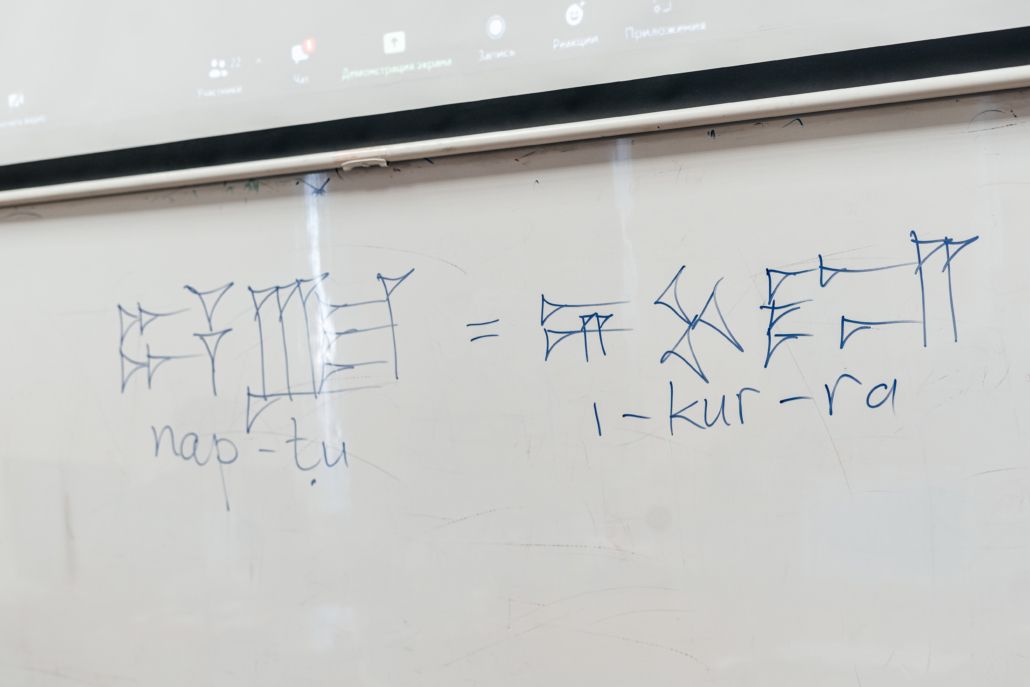 22
Участники Чат Демонстрация экрана Запись Реакции Приложения
𒀮 = 𒉌𒆳𒊏
nap-ṭu ı-kur-ra